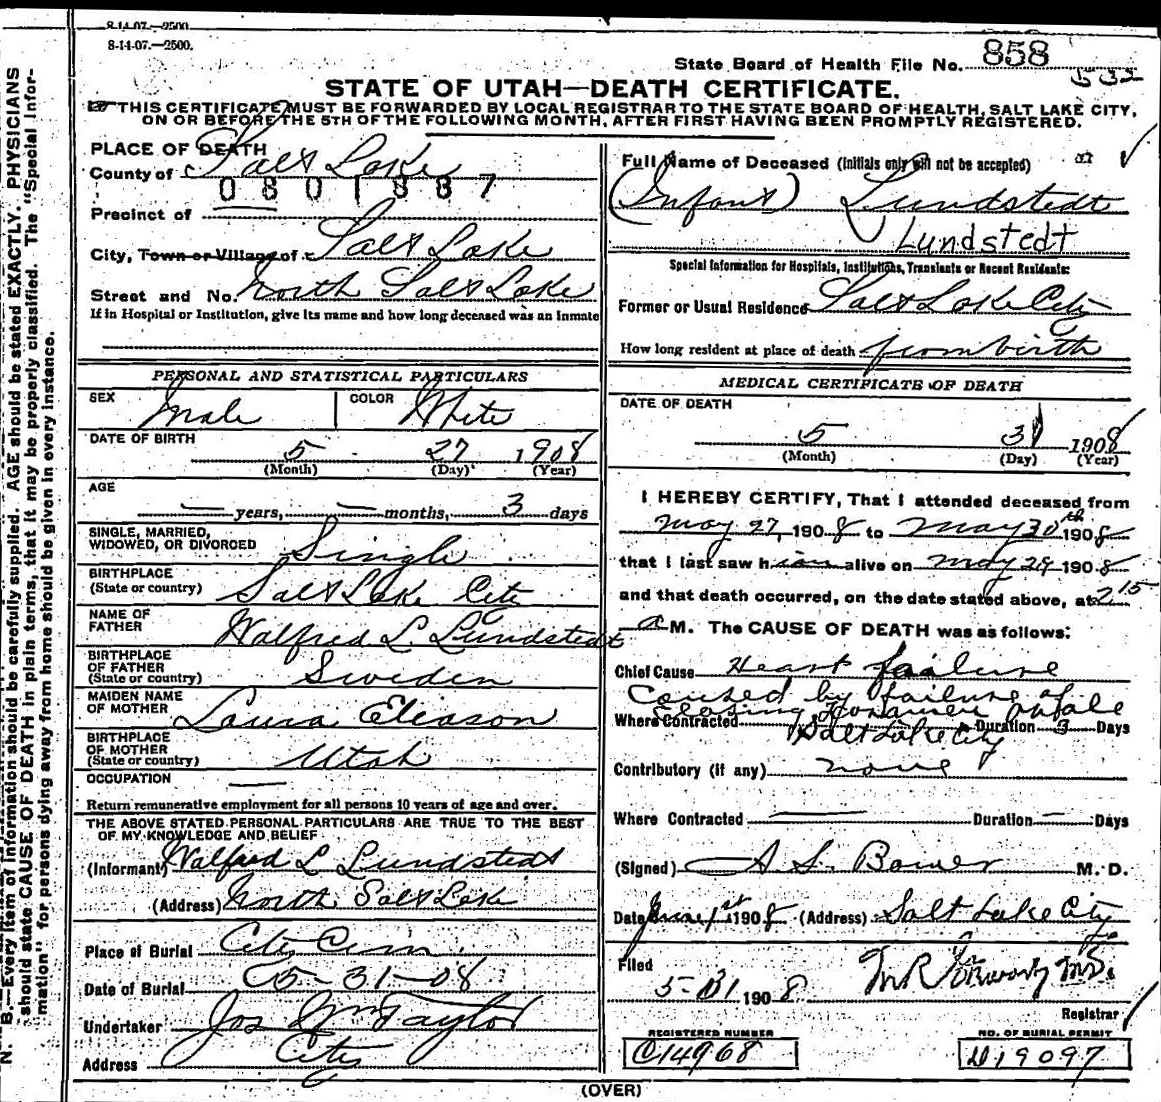 8-14-07.—2500
8-14-07.—2500.
State Board of Health File No. 858
532
STATE OF UTAH—DEATH CERTIFICATE.
THIS CERTIFICATE MUST BE FORWARDED BY LOCAL REGISTRAR TO THE STATE BOARD OF HEALTH, SALT LAKE CITY,
ON OR BEFORE THE 5TH OF THE FOLLOWING MONTH, AFTER FIRST HAVING BEEN PROMPTLY REGISTERED.
PLACE OF DEATH
County of Salt Lake
0801887
Precinct of
City, Town or Village of Salt Lake
Street and No. North Salt Lake
If in Hospital or Institution, give its name and how long deceased was an Inmate
PERSONAL AND STATISTICAL PARTICULARS
SEX Male COLOR White
DATE OF BIRTH
5 27 1908
(Month) (Day) (Year)
AGE
— years, — months, 3 days
SINGLE, MARRIED,
WIDOWED, OR DIVORCED Single
BIRTHPLACE
(State or country) Salt Lake City
NAME OF
FATHER Walfred L. Lundstedt
BIRTHPLACE
OF FATHER
(State or country) Sweden
MAIDEN NAME
OF MOTHER Laura Eleason
BIRTHPLACE
OF MOTHER
(State or country) Utah
OCCUPATION —
Return remunerative employment for all persons 10 years of age and over.
THE ABOVE STATED PERSONAL PARTICULARS ARE TRUE TO THE BEST
OF MY KNOWLEDGE AND BELIEF
(Informant) Walfred L Lundstedt
(Address) North Salt Lake
Place of Burial City Cem.
Date of Burial 5-31-08
Undertaker Jos Wm Taylor
Address City
Full Name of Deceased (Initials only will not be accepted)
(Infant) Lundstedt
Lundstedt
Special Information for Hospitals, Institutions, Transients or Recent Residents:
Former or Usual Residence Salt Lake City
How long resident at place of death from birth
MEDICAL CERTIFICATE OF DEATH
DATE OF DEATH
5 31 1908
(Month) (Day) (Year)
I HEREBY CERTIFY, That I attended deceased from
May 27, 1908 to May 30th 1908
that I last saw him alive on May 29 1908
and that death occurred, on the date stated above, at 2 15
a M. The CAUSE OF DEATH was as follows:
Chief Cause Heart failure
Caused by failure of
closing Foramen Ovale
Where Contracted Salt Lake City Duration 3 Days
Contributory (if any) none
Where Contracted — Duration — Days
(Signed) A. S. Bower M. D.
Date June 1st 1908 (Address) Salt Lake City
Filed
5-31 1908 M R M.D.
Registrar
REGISTERED NUMBER
C14968
NO. OF BURIAL PERMIT
D19097
(OVER)
N. B.—Every item of information should be carefully supplied. AGE should be stated EXACTLY. PHYSICIANS
should state CAUSE OF DEATH in plain terms, that it may be properly classified. The "Special Infor-
mation" for persons dying away from home should be given in every instance.